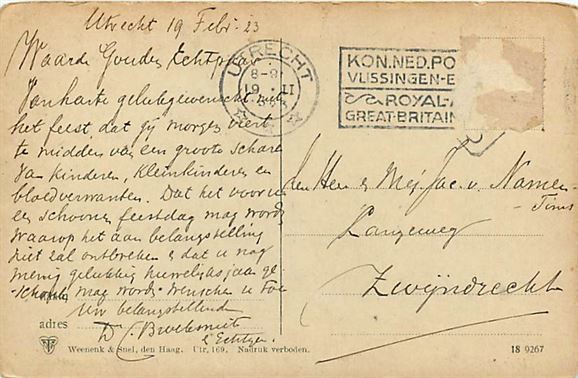 Utrecht 19 Febr. 23
Waarde Gouden Echtpaar
Van harte gelukgewenscht met
het feest, dat gij morgen viert
te midden van een groote schare
van kinderen, kleinkinderen en
bloedverwanten. Dat het voor u
een schoone feestdag mag worden
waarop het aan belangstelling
niet zal ontbreken & dat u nog
menig gelukkig huwelijksjaar ge-
schonken mag worden wenschen u toe
Uw belangstellende
D
& Echtgen.
adres
Weenenk & Snel, den Haag. Utr, 169. Nadruk verboden.
UTRECHT
8-9
19 II
KON. NED. PO
VLISSINGEN-E
ROYAL
GREAT-BRITAIN
den Heer & Mej. Jac. v. Namen-
Tims
Langeweg
Zwijndrecht
18 9267